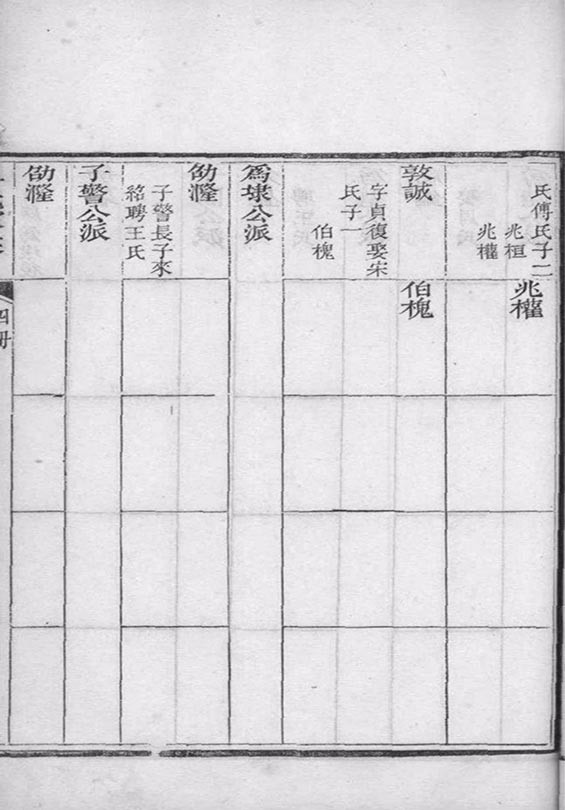 氏傅氏子二
兆桓
兆權
兆權
敦誠
字貞復娶宋
氏子一
伯槐
伯槐
為埭公派
劭瀣
子警長子來
紹聘王氏
子警公派
劭瀣
四册